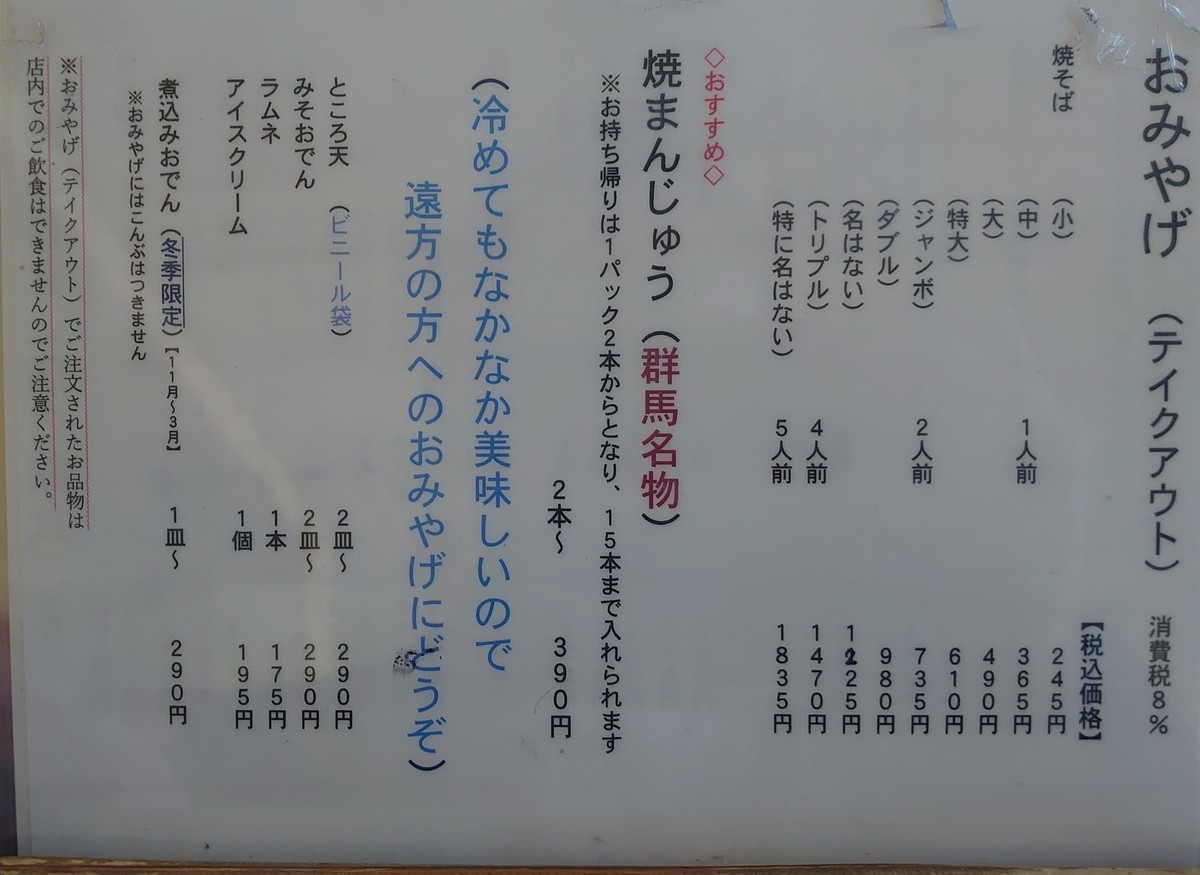 おみやげ（テイクアウト） 消費税8%
【税込価格】
焼そば （小） 245円
（中） 1人前 365円
（大） 490円
（特大） 610円
（ジャンボ） 2人前 735円
（ダブル） 980円
（名はない） 1225円
（トリプル） 4人前 1470円
（特に名はない） 5人前 1835円
◇おすすめ◇
焼まんじゅう（群馬名物）
※お持ち帰りは1パック2本からとなり、15本まで入れられます
2本～ 390円
（冷めてもなかなか美味しいので
遠方の方へのおみやげにどうぞ）
ところ天（ビニール袋） 2皿～ 290円
みそおでん 2皿～ 290円
ラムネ 1本 175円
アイスクリーム 1個 195円
煮込みおでん（冬季限定）【11月～3月】 1皿～ 290円
※おみやげにはこんぶはつきません
※おみやげ（テイクアウト）でご注文されたお品物は
店内でのご飲食はできませんのでご注意ください。